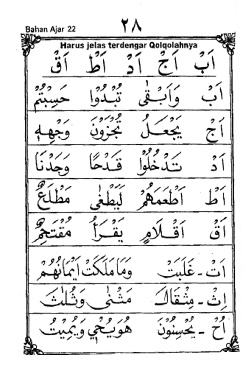 Bahan Ajar 22
٢٨
Harus jelas terdengar Qolqolahnya
اَبْ اَجْ اَدْ اَطْ اَقْ
اَبْ وَاَبْقٰى تُبْدُوْا حَسِبْتُمْ
اَجْ يَجْعَلُ تُجْزَوْنَ وَجْهِهٖ
اَدْ تَدْخُلُوْا قَدْحًا وَجَدْنَا
اَطْ اَطْعَمَهُمْ لَيَطْغٰى مَطْلَعٌ
اَقْ اَقْلَامٍ يَقْرَأُ مُقْتَحِمٌ
اَتْ - غَلَبَتْ وَمَامَلَكَتْ اَيْمَانُهُمْ
اِثْ - مِثْقَالَ مَثْنٰى وَثُلٰثَ
اُحْ - يُحْسِنُوْنَ هُوَيُحْيٖ وَيُمِيْتُ